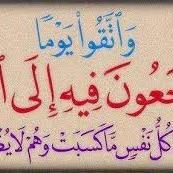 وَاتَّقُوا۟ يَوْمًا
جَعُونَ فِيهِ إِلَى ا
كُلُّ نَفْسٍ مَّا كَسَبَتْ وَهُمْ لَا يُظ